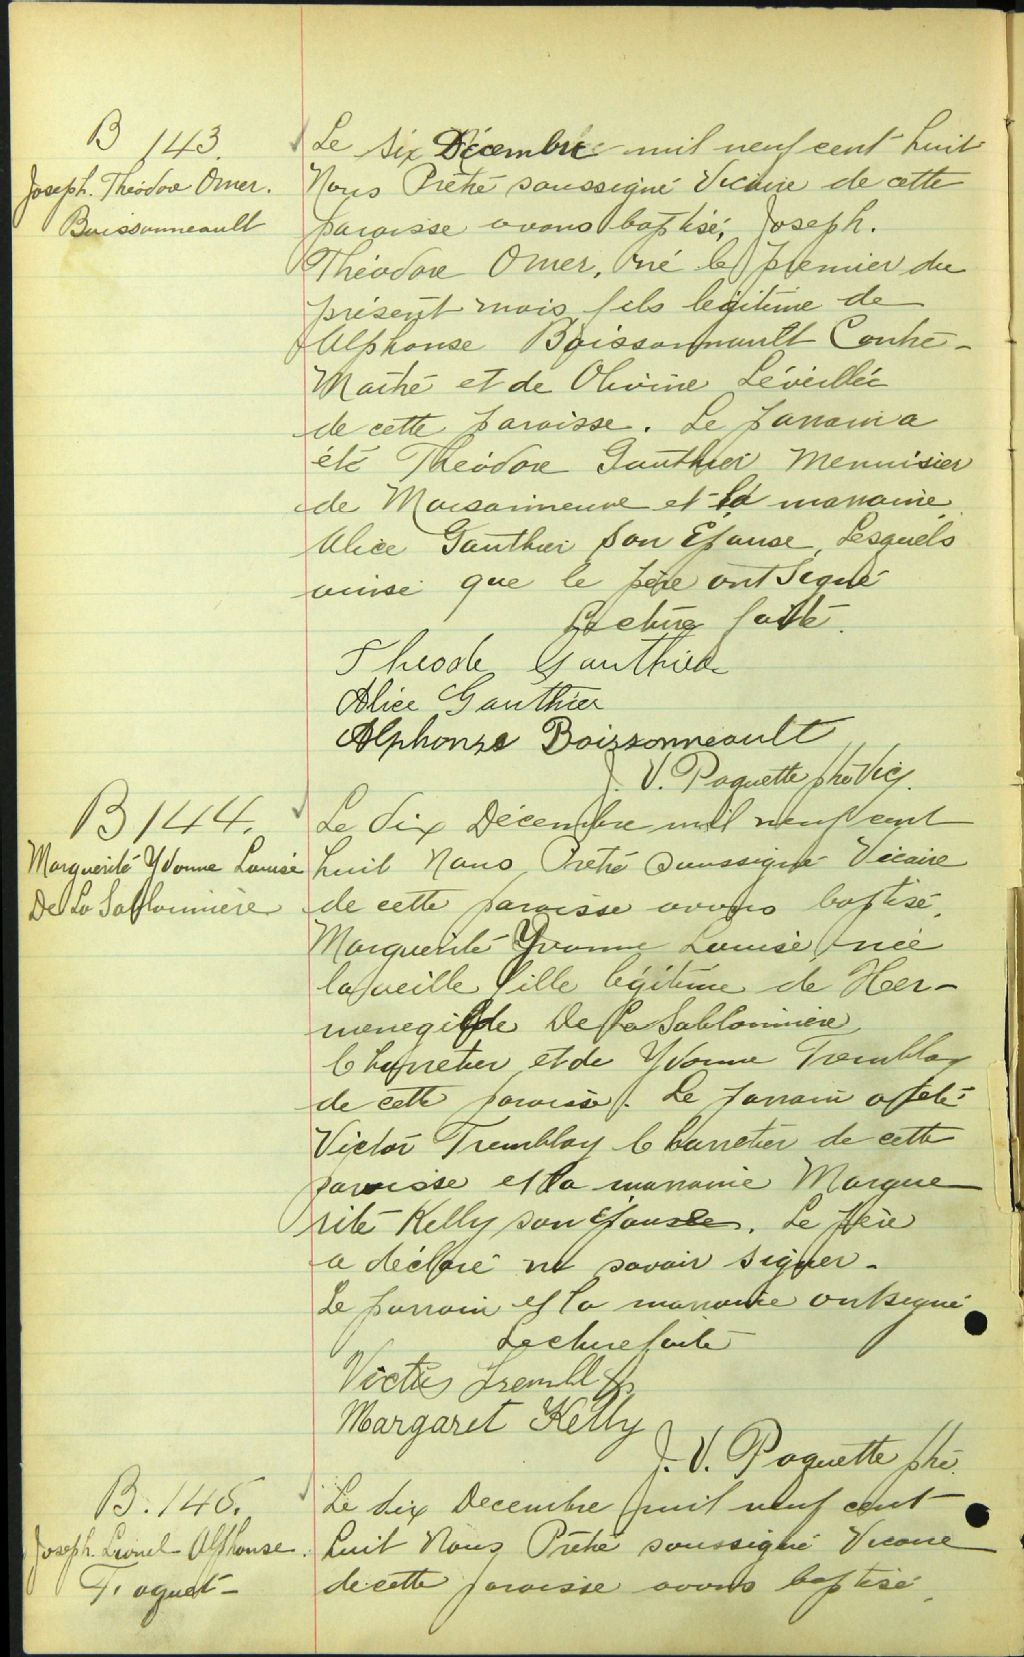 B 143.
Joseph. Théodore Omer.
Boissonneault
Le six Décembre mil neuf cent huit
Nous Prêtre soussigné Vicaire de cette
paroisse avons baptisé, Joseph.
Théodore Omer, né le premier du
présent mois, fils légitime de
Alphonse Boissonnault Contre-
Maître et de Olivine Léveillée
de cette paroisse. Le parrain a
été Théodore Gauthier Menuisier
de Maisonneuve et la marraine
Alice Gauthier son Epouse, Lesquels
ainsi que le père ont signé
Lecture faite.
Gauthier
Alice Gauthier
Alphonse Boissonneault
J. V. Paquette ptre Vic.
B 144.
Marguerite Yvonne Louise
De La Sablonnière
Le dix Décembre mil neuf cent
huit Nous Prêtre soussigné Vicaire
de cette paroisse avons baptisé,
Marguerite Yvonne Louise, née
la veille fille légitime de Her-
menegilde De La Sablonnière
Charretier et de Yvonne Tremblay
de cette paroisse. Le parrain a été
Victor Tremblay Charretier de cette
paroisse et la marraine Margue
rite Kelly son épouse. Le père
a déclaré ne savoir signer.
Le parrain et la marraine ont signé
Lecture faite
Victor Tremblay
Margaret Kelly
J. V. Paquette ptre.
B. 145.
Joseph. Lionel Alphonse.
Le dix Decembre mil neuf cent
huit Nous Prêtre soussigné Vicaire
de cette paroisse avons baptisé,